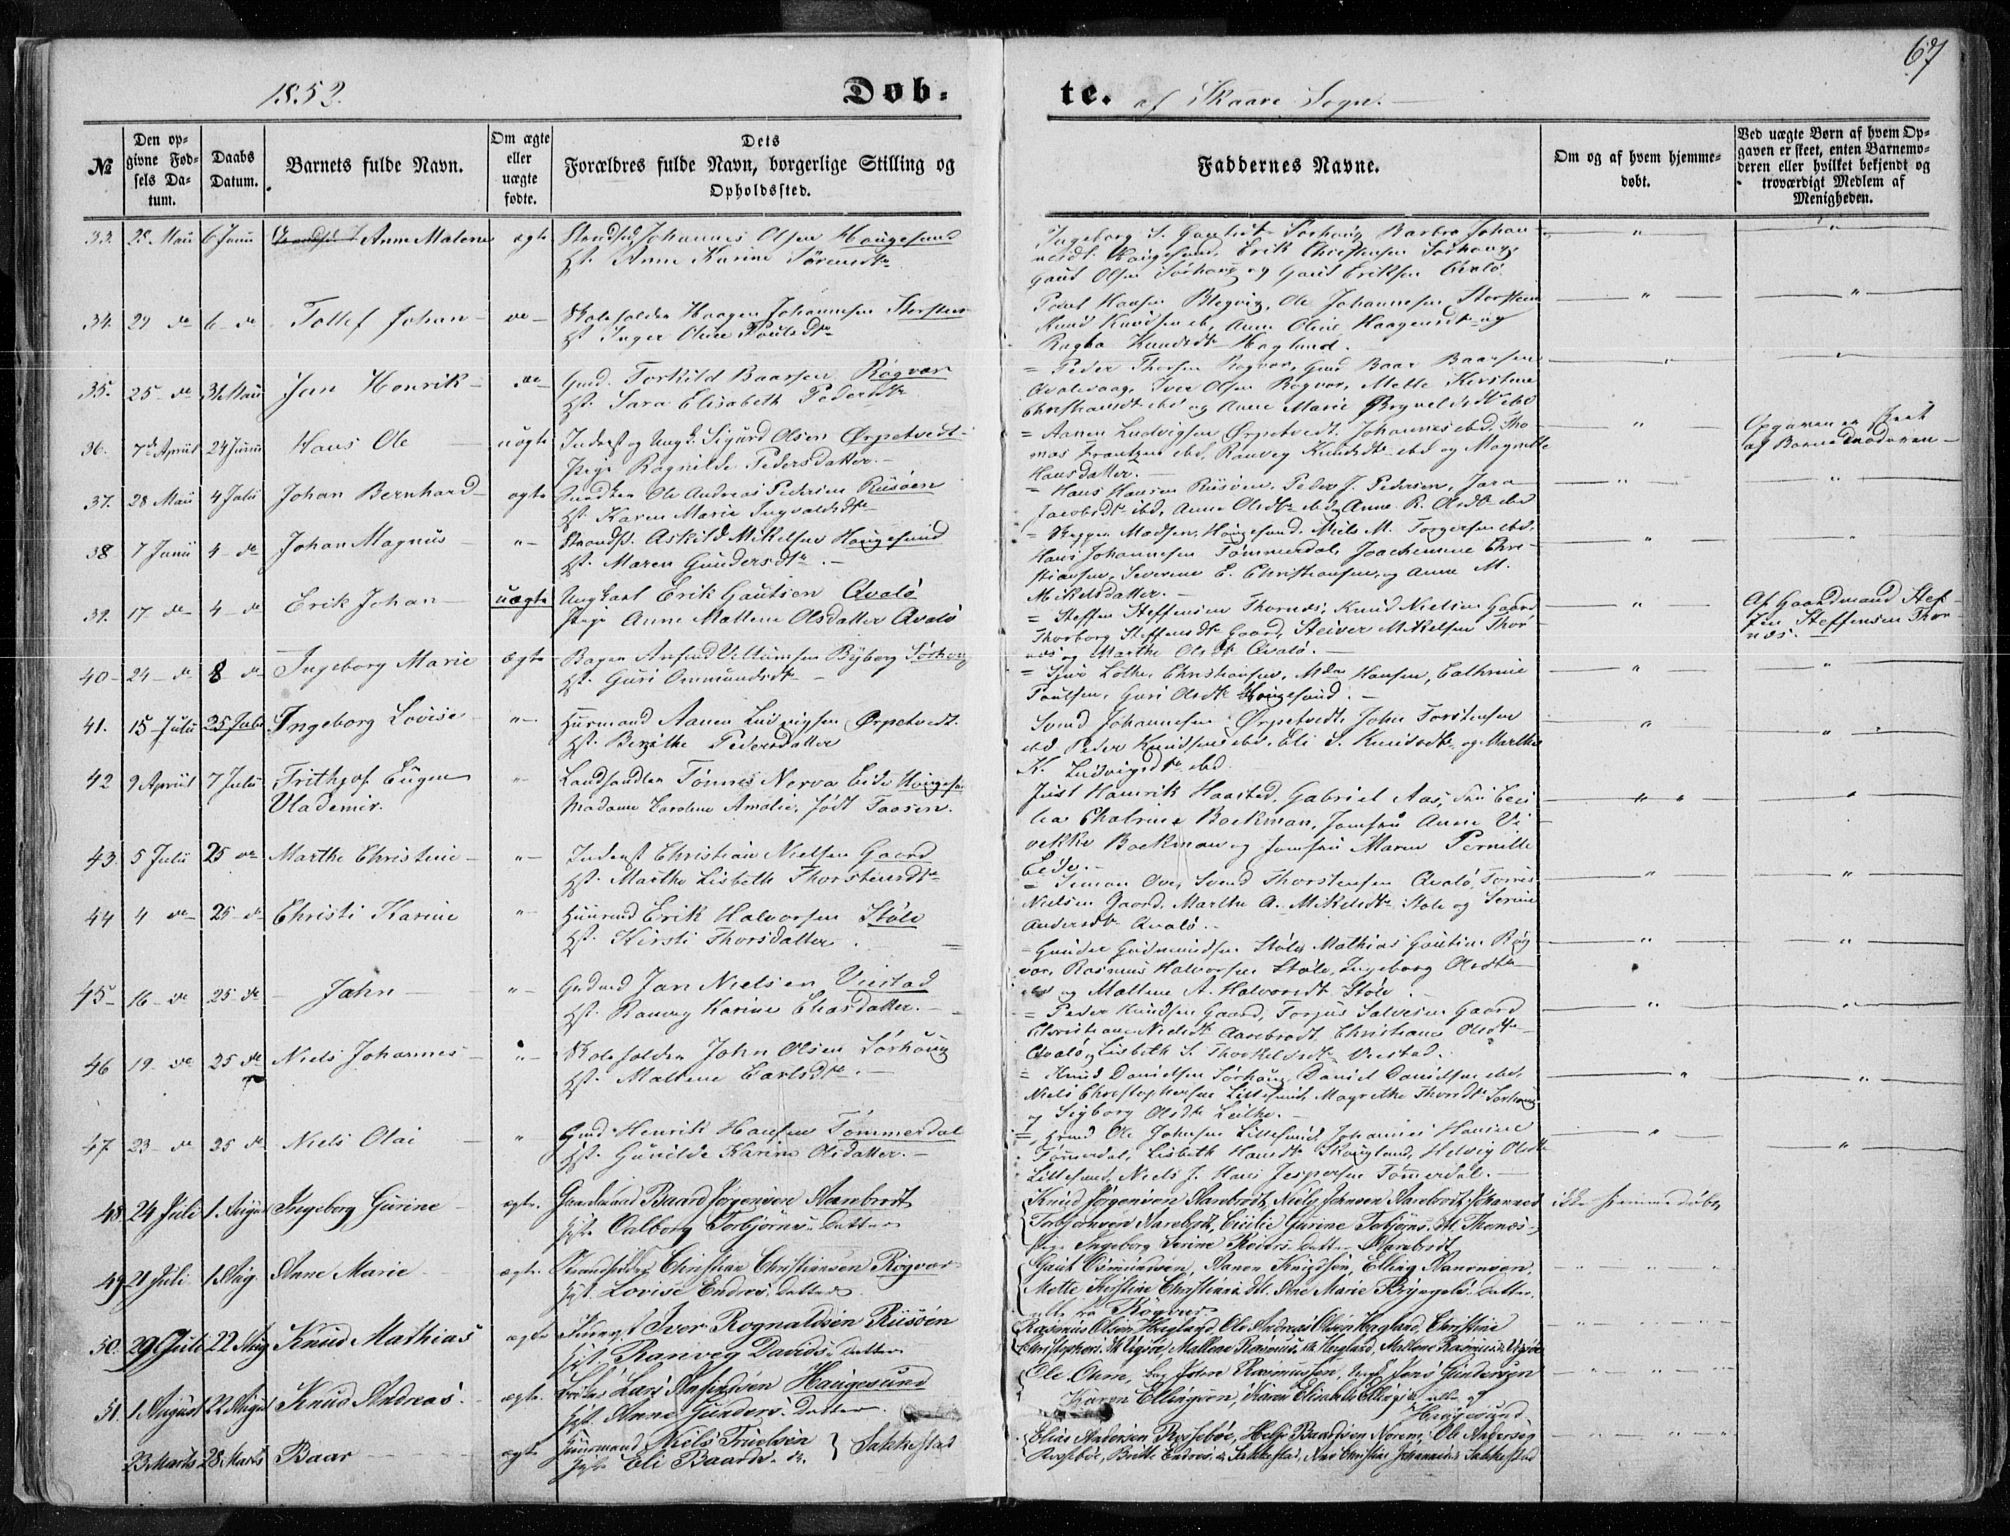 67
1852.
Døb-
te. af Skaare Sogn.
№
Den op-
givne Fød-
sels Da-
tum.
Daabs
Datum.
Barnets fulde Navn.
Om ægte
eller
uægte
fødte.
Dets
Forældres fulde Navn, borgerlige Stilling og
Opholdssted.
Faddernes Navne.
Om og af hvem hjemme-
døbt.
Ved uægte Børn af hvem Op-
gaven er skeet, enten Barnemo-
deren eller hvilket bekjendt og
troværdigt Medlem af
Menigheden.
33. 28 Maii 6 Junii Anne Malene ægte Strandsid. Johannes Olsen Haugesund
Hst. Anne Karine Sörensdtr
Ingeborg S. Gautsdt Sörhaug, Barbro Johan-
nesdt Haugesund, Erik Christensen Sörhaug
Gaut Olsen Sörhaug og Gaut Eriksen Qvalö
34. 29 de 6 de Tollef Johan de Skoleholder Haagen Johannesen Storsteen
Hst. Inger Oline Poulsdtr
Poul Hansen Blegvig, Ole Johannesen Storsteen
Knud Knudsen ibd, Anne Oline Haagensdtr og
Ragba Knudsdt Hagland.
35. 25 de 31 Maii Jan Henrik de Gmd. Torkild Baarsen Røgvær
Hst. Sara Elisabeth Pedersdtr
= Peder Thorsen Røgvær, Gmd Baar Baarsen
Qvalevaag, Iver Olsen Røgvær, Mette Kirstine
Christiansdt ibd og Anne Marie Brynelsdtr ibd
36. 7de Apriil 24 Junii Hans Ole uægte Inderst og Ungk. Sigurd Olsen Ørpetvedt
Pige Ragnilde Pedersdatter.
= Aanen Ludvigsen Ørpetvedt, Johannes ibd, Tho-
mas Frantzen ibd, Ranveg Knudsdtr ibd og Magnille
Hansdatter.
Opgaven er skeet
af Barnemoderen
37. 28 Maii 4 Julii Johan Bernhard ægte Ole Andreas Pedersen Riisöen
Hst. Karen Marie Ingvaldsdtr
= Hans Hansen Riisöen, Peder J. Pedersen, Sara
Jacobsdt ibd, Anne Olsdtr ibd, Anne R. Olsdtr ibd
38 7 Junii 4 de Johan Magnüs Strandsid. Askild Mikelsen Haugesund
Hst. Maren Gundersdtr
Madsen, Haugesund, Niels M. Torgersen ibd,
Hans Johannesen Tömmerdal, Joachimine Chri-
stiansen, Severine E. Christiansen, og Anne M.
Mikelsdatter.
39. 17 de 4 de Erik Johan uægte Ungkarl Erik Gautsen Qvalö
Pige Anne Mallene Olsdatter Qvalö
= Steffen Steffensen Thornæs, Knud Nielsen Gaard
Thorborg Steffensdtr Gaard, Steiner Mikelsen Thor-
næs og Marthe Olsdtr Qvalö.
Af Gaardmand Stef-
fen Steffensen Thor-
næs.
40 24 de 8 de Ingeborg Marie ægte Bager Arnfind Villumsen Byberg Sörhaug
Hst. Guri Ommundsdtr
= Sjur Lothe, Christiansen, Mda Hansen, Cathrine
Poulsen, Guri Olsdtr Haugesund.
41. 15 Julii 25 Julii Ingeborg Lovise Huusmand Aanen Ludvigsen Ørpetvedt.
Hst. Berithe Pedersdatter
Svend Johannesen Ørpetvedt, John Torstensen
ibd Peder Knudsen ibd, Eli S. Knudsdtr og Marthe
K. Ludvigsdtr ibd
42 9 Apriil 7 Julii Frithjof Eugen
Vlademir.
Landhandler Tönnes Nerva Eide Haugesund
Madame Caroline Amalie, født Taasen.
Just Henrik Haasted, Gabriel Aas, Frü Ceci-
lia Chatrine Bockman, Jomfrü Anne Vi-
vekke Bockman og Jomfrü Maren Pernille
Eide.
43. 5 Julii 25 de Marthe Christine Inderst Christian Nielsen Gaard
Hst. Marthe Lisbeth Thorstensdtr
= Simon Ove, Svend Thorstensen Qvalö, Torris
Nielsen Gaard, Marthe A. Mikelsdtr Stole og Serine
Andersdtr Qvalö.
44 4 de 25 de Christi Karine Huusmd Erik Halvorsen Stöle
Hst. Kirsti Thorsdatter.
Gunder Gudmundsen Stöle, Mathias Gautsen Røg-
vær, Rasmus Halvorsen Stöle, Ingeborg Olsdtr
ibd og Mallene A. Halvorsdt Stöle.
45 16 de 25 de Jahn Gmd Jan Nielsen Viestad
Hst. Ranveg Karine Eliasdatter.
= Peder Knudsen Gaard, Torjus Salvesen Gaard
Christiane Nielsdtr Aarebrodt, Christiane Olsdtr
Qvalö, Lisbeth S. Thorkelsdtr Viestad.
46 19 de 25 de Niels Johannes Skoleholder John Olsen Sörhaug
Hst. Mallene Carlsdtr.
= Knud Danielsen Sörhaug, Daniel Danielsen ibd,
Niels Christophersen Lillesund, Magrethe Thorsdtr Sörhaug
og Sigborg Olsdtr Leithe.
47. 23 de 25 de Niels Olai Gmd Henrik Hansen Tömmerdal
Hst. Gunilde Karine Olsdatter.
Ole Johnsen Lillesund, Johannes Hansen
Tömerdal, Lisbeth Hansdt Skeugland, Helvig Olsdtr
Lillesund, Niels J. Hans Jespersen Tömerdal.
48 24 Juli 1 August Ingeborg Gurine ægte. Gaardmand Baard Jørgensen Aarebrodt
Hst. Valborg Torbjörns Datter
Knud Jørgensen Aarebrodt, Niels Johnsen Aarebrodt, Johannes
Torbjörnsen Aarebrodt, Cicilie Gurine Torbjörns. Dt. Thonæs
Pige Ingeborg Serine Peders. Datter Aarebrodt.
ikke hjemmedøbt.
49 21 Juli 1 Aug. Anne Marie ægte. Strandsidder Christian Christiansen Røgvær
Hst. Lovise Endres. Datter
Gaut Osmundsen, Aanen Knudsen, Elling Aanensen,
Mette Kirstine Christians. Dt. Ane Marie Bryngels. Datter.
alle fra Røgvær
50. 29 Juli 22 Aug Knud Mathias ægte Iver Rognaldsen Riisöen
Hst. Ranveg Davids. Datter
Rasmus Olsen Hagland, Ole Andreas Olsen Hagland, Christine
Christophers. Dt. Vigsöe, Mallene Rasmus. Dt. Hagland, Mallene Rasmus. Dt.
51. 1 August 22 August Knud Andreas ægte. Lars Aslaksen Haugesund
Hst. Anne Gunders. Datter.
Ole Ohm, Peder Rasmussen, Ungk. Jens Gundersen
Karen Ellingsen, Karen Elisabeth Ellings. Dt. alle af
Haugesund
23 Marts 28 Marts Baar ægte Huusmand Niels Truelsen
Hst. Eli Baards. Dr. } Sakkestad
Elias Andersen Rossebøe, Helge Baardsen Norem, Ole Andersen
Rossebøe, Britte Endres. Dr. Sakkestad, Ane Christine Johannes. Sakkestad